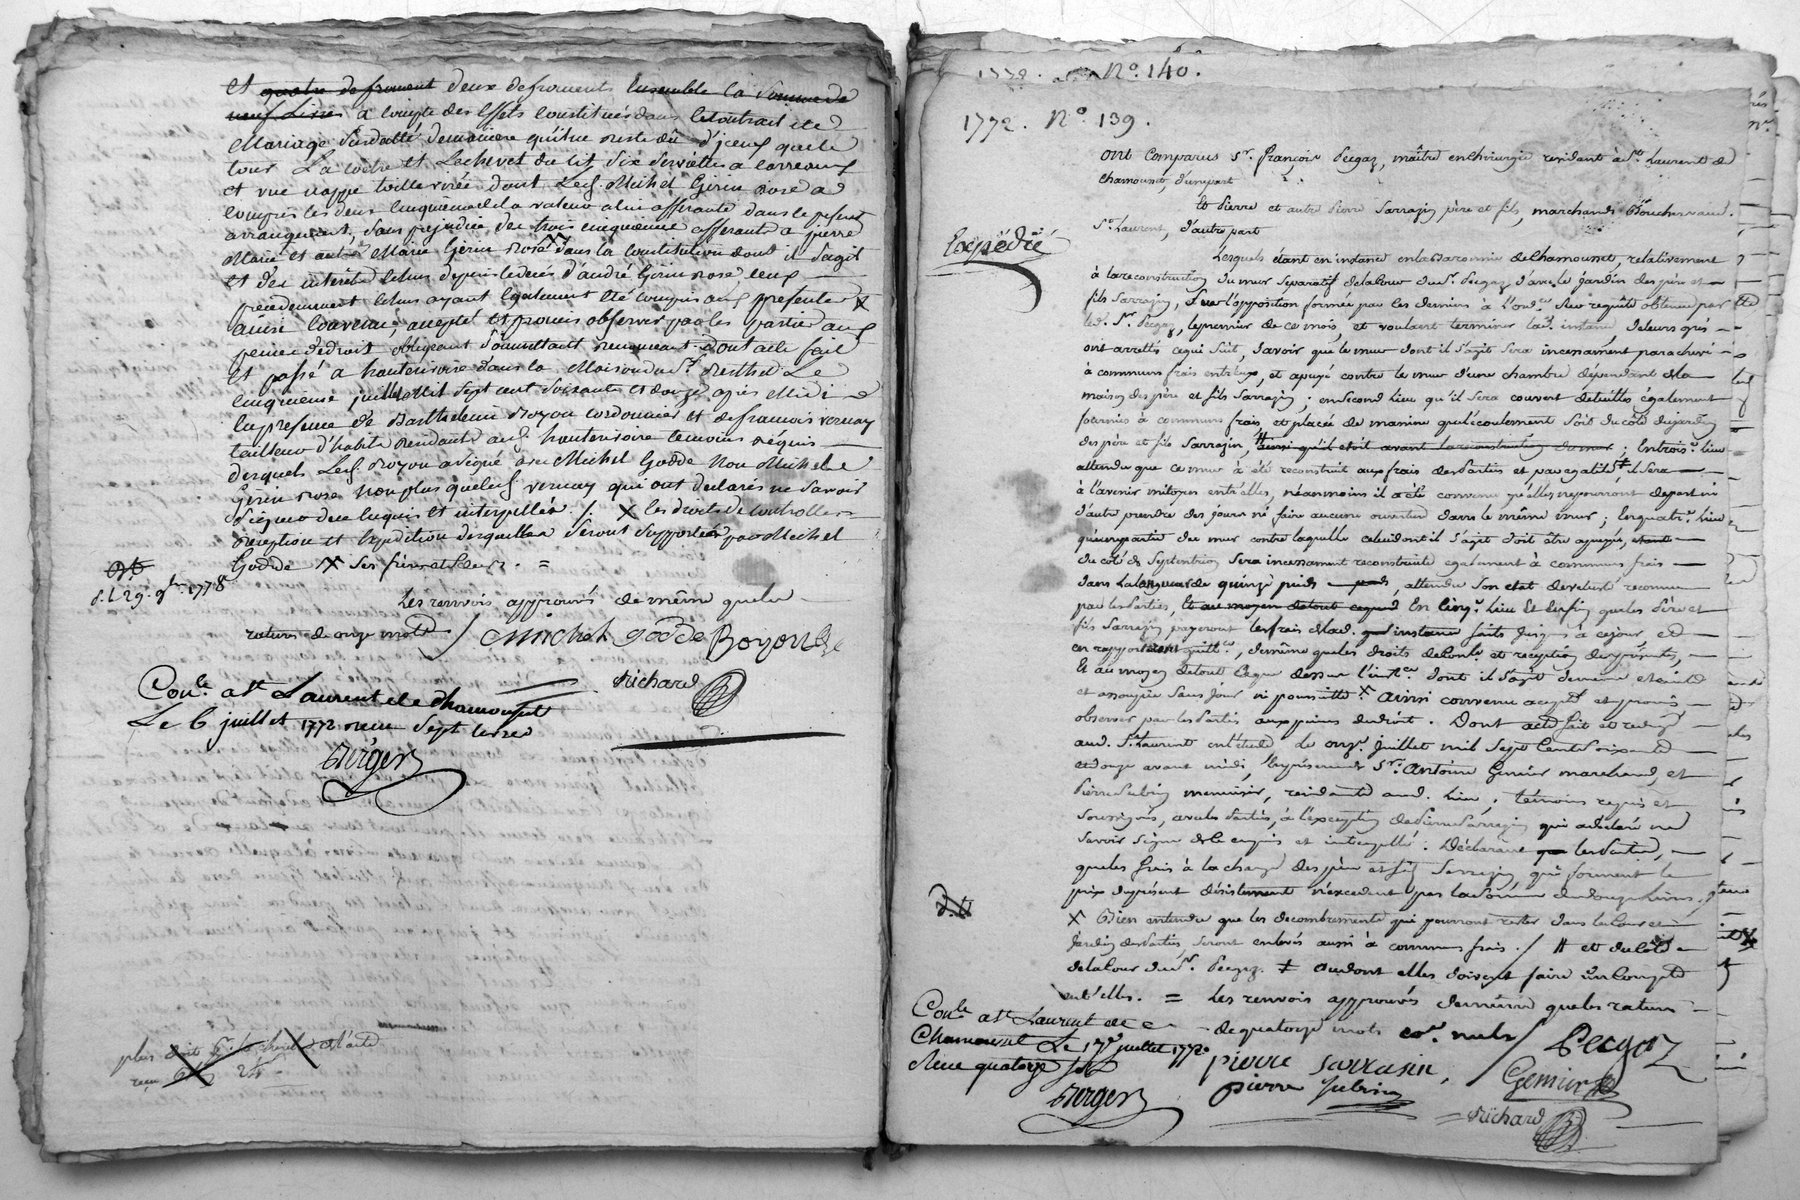 et quatre de froment deux de froments Ensemble la Somme de
neuf Livres a compte des Effets Constitués dans le Contrait de
Mariage Susdatté demaniere qu'il ne reste dû d'iceux que le
tour La coetre et Le chevet du lit, Six Serviettes a Carreaux
et une nappe toille rirée dont Led. Michel Gerin rose a
Compris les deux Cinquieme de la valeur a lui afferante dans le present
arrangement, Sans prejudice des trois cinquieme afferants a pierre
Marie et autre Marie Gerin rose dans la Constitution dont il S'agit
et des interets Echus depuis le deces d'andré Gerin rose ceux
precedemment Echus ayant Egalement Eté Compris aux presentes X
ainsi Convenu, accepté et promis observer par les parties aux
peines de droit obligeant Soumettant renonceant Dont acte fait
et passé a hauterivoire dans la Maison du Sr. Berthet Le
Cinquieme juillet Mil Sept cent Soixante et douze après Midi
En presence de Barthelemi Boyou Cordonnier et de francois vernay
tailleur d'habits Residants aud. hauterivoire temoins requis
desquels Led. Boyou a Signé avec Michel Godde Non Michel
Gerin rose Non plus que led. vernay qui ont declarés ne Savoir
Signer de ce Enquis et interpellés ./. X les droits de Controlle
inception et Expedition desquelles Seront Supportés par Michel
Godde X Ses freres et Soeurs. =
d. L. 29. 9bre 1778
Les renvois approuvés de même que la
rature de onze mots / Michel godde Boyou
Richard
Conle. a St. Laurent de Chamousset
Le 6 juillet 1772 reçu Sept Livres
Burger
plus
reçu
1772. No. 140.
1772. No. 139.
Ont Comparus Sr. françois Pecgaz, maître en chirurgie residant à St. Laurent de
Chamousset, d'une part
Et Pierre et autre Pierre Sarrazin père et fils, marchands Bouchers aud.
St. Laurent, d'autre part
Expédié
Lesquels étant en instance en la Baronnie de Chamousset, relativement
à la reconstruction du mur Separatif de la Cour du Sr. Pecgaz d'avec le Jardin des père et
fils Sarrazin, Sur l'opposition formée par les derniers à l'ordce. Sur requête obtenue par
led. Sr. Pecgaz, le premier de ce mois, et voulant terminer lad. instance, de leurs grés
ont arrettés ce qui Suit, Savoir que le mur dont il s'agit Sera incessament parachevé
à communs frais entr'eux, et apuyé contre le mur d'une chambre dépendant de la
maison des père et fils Sarrazin; en Second Lieu qu'il Sera couvert de tuilles également
fournies à communs frais, et placée de maniere que l'écoulement Soit du coté du jardin
des père et fils Sarrazin, # ainsi qu'il etoit avant la reconstruction du mur; En trois. lieu
attendu que ce mur à été reconstruit aux frais des Parties et par égalité ‡ il Sera
à l'avenir mitoyen entr'elles, néanmoins il a été convenu qu'elles ne pourront de part ni
d'autre prendre des jours ni faire aucune ouverture dans le même mur; En quatre. Lieu
qu'une partie du mur contre laquelle celui dont il S'agit doit être apuyé,
du coté de Septentrion Sera incessament reconstruite egalement à communs frais
dans la Longueur de quinze pieds, attendu Son etat de vetusté reconnu
par les Parties, Et au moyen de tout ce que d En Cinq. Lieu Et Enfin que les Père et
fils Sarrazin payeront les frais de lad. instance faits jusques à ce jour, et
en rapporteront quittce., de même que les droits de Conle. et reception des présentes,
Et au moyen de tout ce que dessus l'instce. dont il S'agit demeure eteinte
et assoupie Sans Jour ni poursuitte X Ainsi convenu accepté et promis
observer par les Parties aux peines de droit. Dont acte fait et redigé
aud. St. Laurent en l'étude, le onze. juillet mil Sept Cent Soixante
et douze avant midi, En présence de Sr. Antoine Genier marchand, et
Pierre Subrin menuisier, residants aud. Lieu, témoins requis et
Soussignés, avec les Parties, à l'exception de Pierre Sarrazin qui a declaré ne
Savoir Signer de ce enquis et interpellé. Déclarant les Parties,
que les frais à la charge des père et fils Sarrazin qui forment le
prix du présent désistement n'excedent pas la Somme de douze Livres. /
X Bien entendu que les decombrements qui pourront rester dans la Cour et
Jardin des Parties, Seront enlevés aussi à communs frais ./ # et du coté
de la Cour du Sr. Pecgaz. ‡ Ou dont elles doivent faire un Compte
entr'elles. = Les renvois approuvés de même que les ratures
de quatorze mots coe. nuls / Pecgaz
Conle. a St. Laurent de
Chamousset Le 17e juillet 1772
Reçu quatorze Sols
Burger
pierre sarrasin, Genier
pierre subrin
Richard